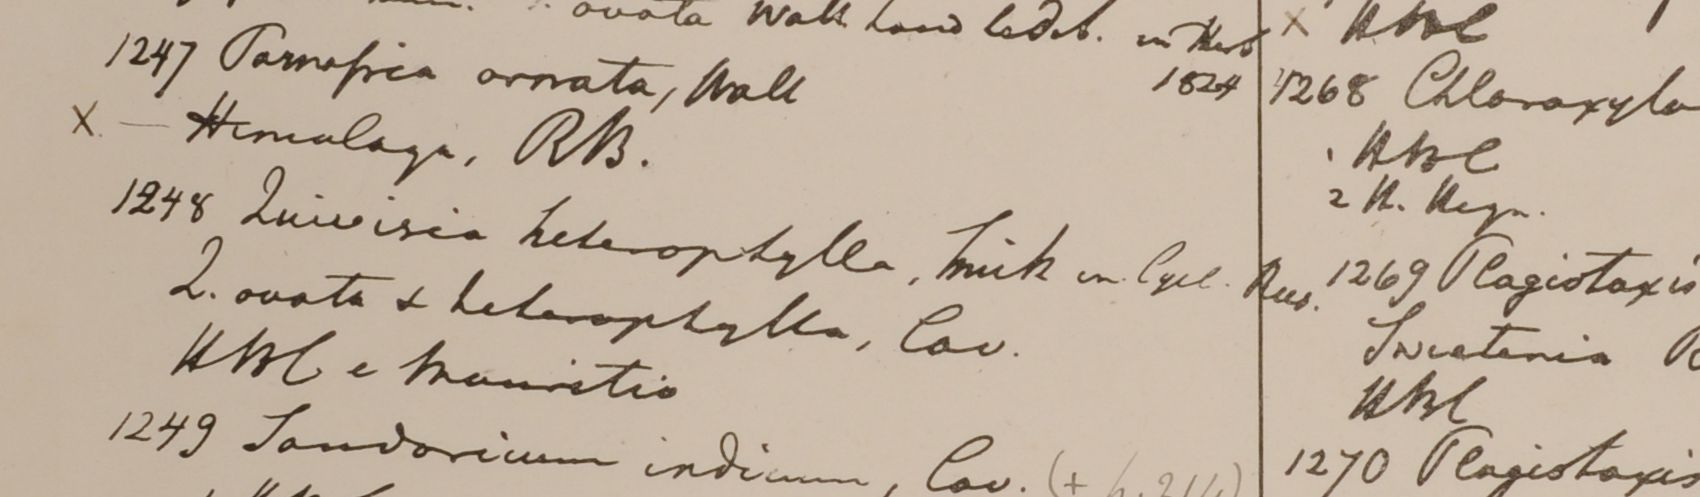 ovata Wall
1824
1247 Parnassia ornata, Wall
X — Himalaya, RB.
1248 Quivisia heterophylla, Smith in Cycl. Rees.
Q. ovata & heterophylla, Cav.
HBC e Mauritio
1249 Sandoricum indicum, Cav.
X HBC
1268 Chloroxylo
HBC
2 H.
1269 Plagiotaxis
Swietenia R
HBC
1270 Plagiotaxis